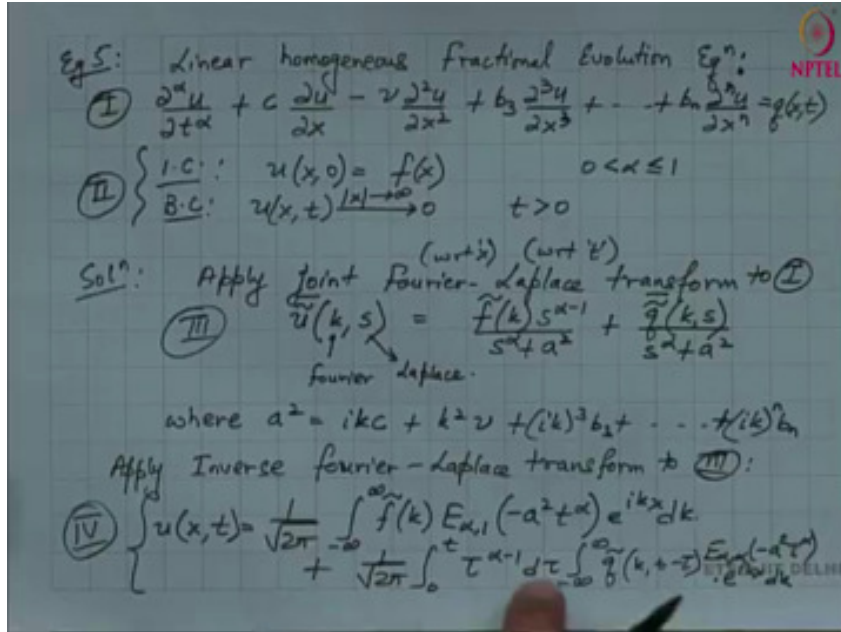 Eg 5: Linear homogeneous Fractional Evolution Eqⁿ:
NPTEL
(I) ∂^α u/∂t^α + c ∂u/∂x - ν ∂²u/∂x² + b₃ ∂³u/∂x³ + ... + bₙ ∂ⁿu/∂xⁿ = q(x,t)
(II) { I.C.: u(x,0) = f(x) 0 < α ≤ 1
B.C: u(x,t) →^{|x|→∞} 0 t > 0
(wrt 'x') (wrt 't')
Solⁿ: Apply Joint Fourier-Laplace transform to (I)
(III) ũ̄(k,s) = f̃(k) s^{α-1}/(s^α + a²) + q̃̄(k,s)/(s^α + a²)
Fourier Laplace.
where a² = ikc + k²ν + (ik)³b₃ + ... + (ik)ⁿbₙ
Apply Inverse Fourier-Laplace transform to (III):
(IV) { u(x,t) = 1/√2π ∫_{-∞}^{∞} f̃(k) E_{α,1}(-a²t^α) e^{ikx} dk
+ 1/√2π ∫_0^t τ^{α-1} dτ ∫_{-∞}^{∞} q̃(k,t-τ) E_{α,α}(-a²τ^α) e^{ikx} dk
DELHI